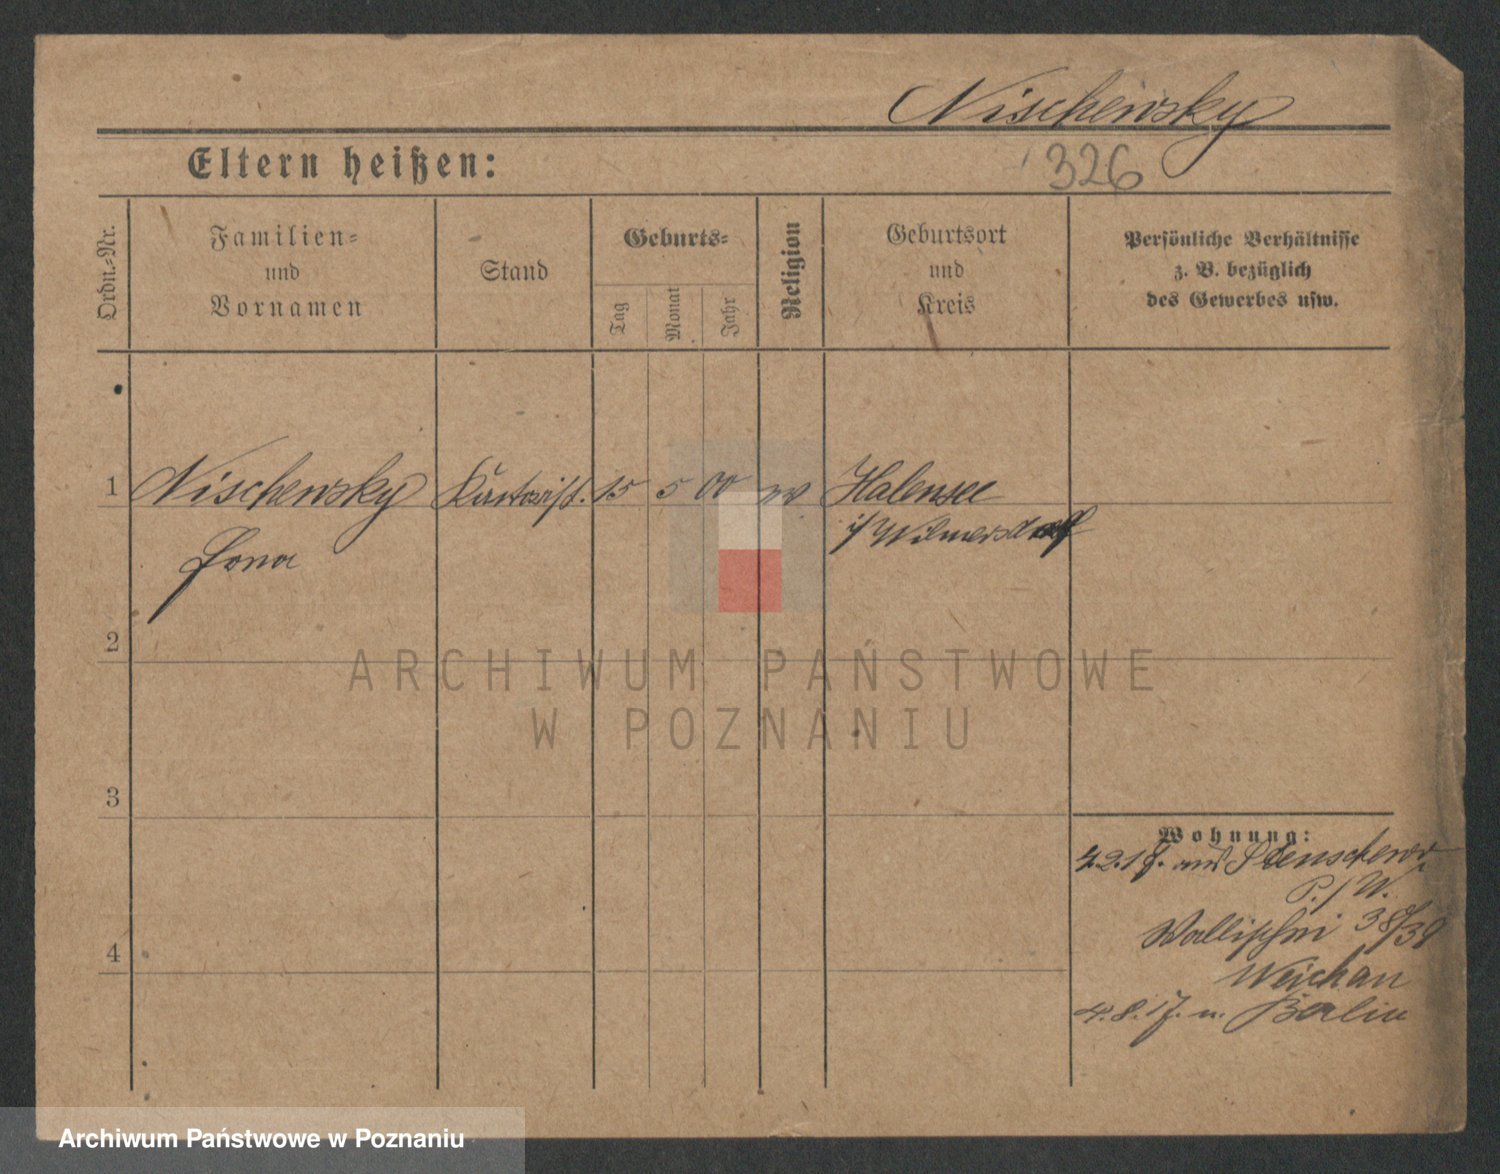 Nischewsky
Eltern heißen:
326
Ordn.-Nr.
Familien-
und
Vornamen
Stand
Geburts-
Tag
Monat
Jahr
Religion
Geburtsort
und
Kreis
Persönliche Verhältnisse
z. B. bezüglich
des Gewerbes usw.
1 Nischewsky 15 5 00 Halensee
i/ Wilmersdorf
2
3
4
Wohnung:
4.2.17. aus
P./W.
Wallischei 38/39
Weichan
4.8.17. n. Berlin
ARCHIWUM PAŃSTWOWE
W POZNANIU
Archiwum Państwowe w Poznaniu